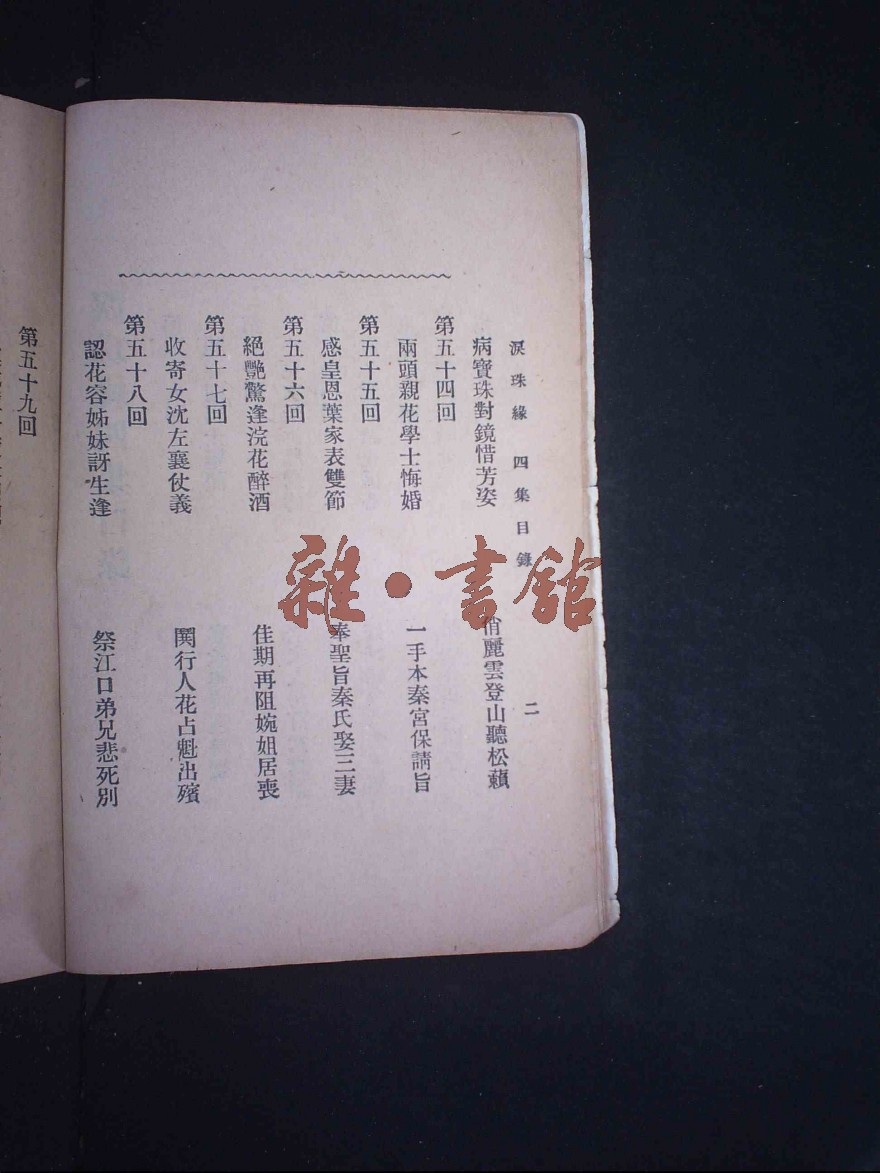 淚珠緣 四集目錄 二
病寶珠對鏡惜芳姿 俏麗雲登山聽松藾
第五十四回
兩頭親花學士悔婚 一手本秦宮保請旨
第五十五回
感皇恩葉家表雙節 奉聖旨秦氏娶三妻
第五十六回
絕艷驚逢浣花醉酒 佳期再阻婉姐居喪
第五十七回
收寄女沈左襄仗義 関行人花占魁出殯
第五十八回
認花容姊妹訝生逢 祭江口弟兄悲死別
第五十九回
雜·書舘